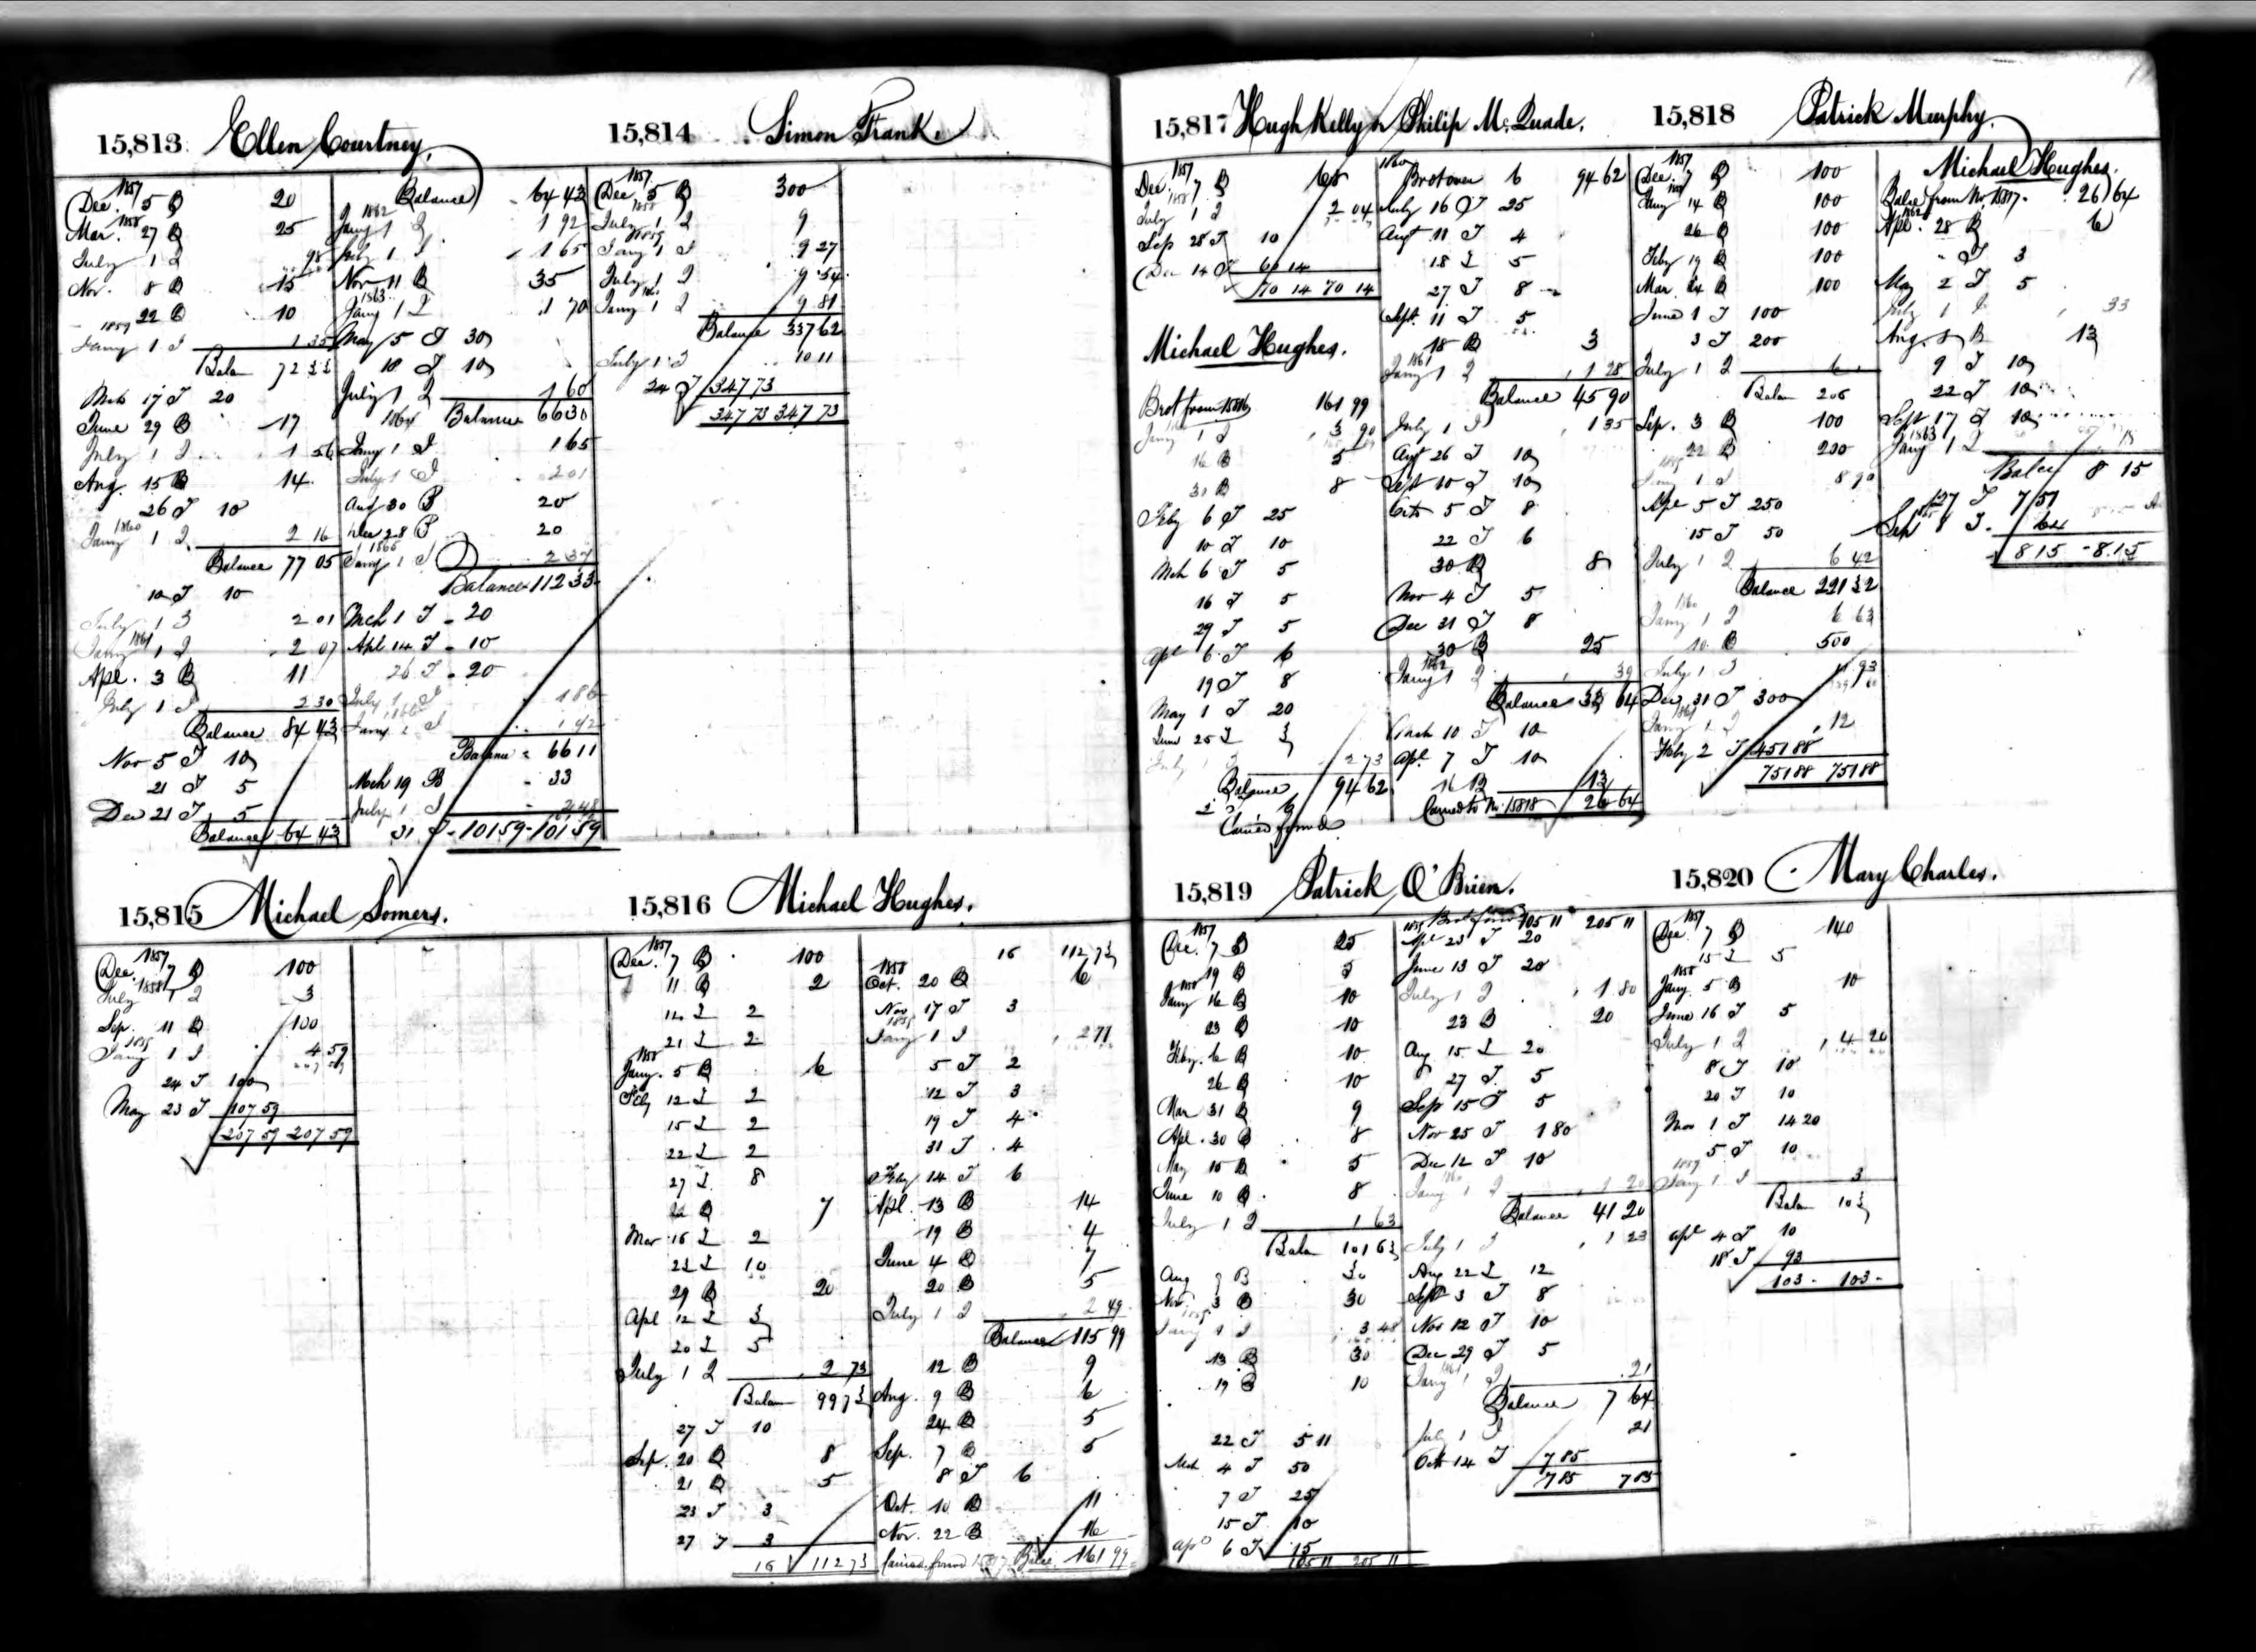 15,813 Ellen Courtney.
1857
Dec. 5 B 20
1858
Mar. 27 B 25
July 1 I 98
Nov. 8 B 15
22 B 10
1859
Jany 1 I 1 35
Balan 72 33
Mch 17 T 20
June 29 B 17
July 1 I 1 56
Aug. 15 B 14
26 T 10
1860
Jany 1 I 2 16
Balance 77 05
10 T 10
July 1 I 2 01
1861
Jany 1 I 2 07
Apl. 3 B 11
July 1 I 2 30
Balance 84 43
Nov 5 T 10
21 T 5
Dec 21 T 5
Balance 64 43
Balance 64 43
1862
Jany 1 I 1 92
July 1 I 1 65
Nov 11 B 35
1863
Jany 1 I 1 70
May 5 T 30
18 T 10
July 1 I 1 60
Balance 66 30
1864
Jany 1 I 1 65
July 1 I 2 01
Aug 30 B 20
Dec 28 B 20
1865
Jany 1 I 2 37
Balance 112 33
Mch 1 T 20
Apl 14 T 10
26 T 20
July 1 I 1 86
1866
Jany 1 I 1 92
Balance 66 11
Mch 19 B 33
July 1 I 2 48
31 T 101 59 101 59
15,814 Simon Frank.
1857
Dec 5 B 300
1858
July 1 I 9
1859
Jany 1 I 9 27
July 1 I 9 54
1860
Jany 1 I 9 81
Balance 337 62
July 1 I 10 11
24 T 347 73
347 73 347 73
15,815 Michael Somers.
1857
Dec. 7 B 100
1858
July 1 I 3
Sep. 11 B 100
1859
Jany 1 I 4 59
24 T 100
May 23 T 107 59
207 59 207 59
15,816 Michael Hughes.
1857
Dec. 7 B 100
11 B 2
14 T 2
21 T 2
1858
Jany. 5 B 6
Feby 12 T 2
15 T 2
22 T 2
27 T 8
B 7
Mar 15 T 2
23 T 10
29 B 20
Apl 12 T 3
20 T 5
July 1 I 2 73
Balan 99 73
27 T 10
Sep. 20 B 8
21 B 5
23 T 3
27 T 3
16 112 73
16 112 73
1858
Oct. 20 B 6
Nov 17 T 3
1859
Jany 1 I 2 77
5 T 2
12 T 3
19 T 4
31 T 4
Feby 14 T 6
Apl. 13 B 14
19 B 4
June 4 B 7
20 B 5
July 1 I 2 49
Balance 115 99
12 B 9
Aug. 9 B 6
24 B 5
Sep. 7 B 5
8 T 6
Oct. 10 B 11
Nov. 22 B 16
Carried forwd 15817 Balce 161 99
15,817 Hugh Kelly or Philip McQuade.
1857
Dec. 7 B 68
1858
July 1 I 2 04
Sep 28 T 10
Dec 14 T 60 14
70 14 70 14
Michael Hughes.
Brot from 15816 161 99
Jany 1 I 3 90
16 B 5
30 B 8
Feby 6 T 25
10 T 10
Mch 6 T 5
16 T 5
29 T 5
Apl 6 T 6
19 T 8
May 1 T 20
June 25 T 3
July 1 I 2 73
Balance 94 62
Carried forwd
1860
Brot over 6 94 62
July 16 T 25
Augt 11 T 4
18 T 5
27 T 8
Sept. 11 T 5
18 B 3
1861
Jany 1 I 1 28
Balance 45 90
July 1 I 1 35
Augt 26 T 10
Sept 10 T 10
Octr 5 T 8
22 T 6
30 B 8
Nov 4 T 5
Dec 31 T 8
30 B 25
1862
Jany 1 I 39
Balance 33 64
Mach 10 T 10
Apl. 7 T 10
16 B 13
Carried to No. 15818 26 64
15,818 Patrick Murphy.
1857
Dec. 7 B 100
1858
Jany 14 B 100
26 B 100
Feby 19 B 100
Mar. 24 B 100
June 1 T 100
3 T 200
July 1 I 6
Balan 206
Sep. 3 B 100
22 B 200
1859
Jany 1 I 8 90
Apl 5 T 250
15 T 50
July 1 I 6 42
Balance 221 32
1860
Jany 1 I 6 63
10 B 500
July 1 I 11 93
Dec. 31 T 300
1861
Jany 1 I 12
Feby 2 T 451 88
751 88 751 88
Michael Hughes.
Balce from No. 15817. 26 64
1862
Apl. 28 B 6
" T 3
May 2 T 5
July 1 I 33
Aug. 8 B 13
9 T 10
22 T 10
Sept 17 T 10
1863
Jany 1 I 18
Balce 8 15
27 T 7 51
Sep 8 T 64
8 15 8.15
15,819 Patrick O'Brien.
1857
Dec. 7 B 25
19 B 5
1858
Jany 16 B 10
23 B 10
Feby. 6 B 10
26 B 10
Mar 31 B 9
Apl. 30 B 8
May 15 B 5
June 10 B 8
July 1 I 1 63
Balan 101 63
Aug 7 B 30
Nov. 3 B 30
1859
Jany 1 I 3 48
13 B 30
19 B 10
22 T 5 11
Mch 4 T 50
7 T 25
15 T 10
Apl 6 T 15
105 11 205 11
1859 Brot forwd 105 11 205 11
Apl 23 T 20
June 13 T 20
July 1 I 1 80
23 B 20
Aug 15 T 20
27 T 5
Sep 15 T 5
Nov 25 T 1 80
Dec 12 T 10
1860
Jany 1 I 1 20
Balance 41 20
July 1 I 1 23
Aug 22 T 12
Sept 3 T 8
Nov 12 T 10
Dec 29 T 5
1861
Jany 1 I 21
Balance 7 64
July 1 I 21
Octr 14 T 7 85
7 85 7 85
15,820 Mary Charles.
1857
Dec. 7 B 140
15 T 5
1858
Jany. 5 B 10
June 16 T 5
July 1 I 4 20
8 T 10
20 T 10
Nov 1 T 14 20
5 T 10
1859
Jany 1 I 3
Balan 103
Apl 4 T 10
18 T 93
103 - 103 -